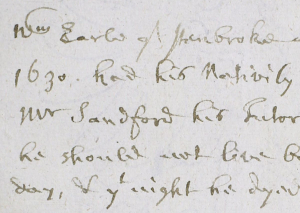 Wm Earle of Penbroke
1630. had his Nativity
Mr Sandford his Tutor
he should not live b
day, & yt night he dyed